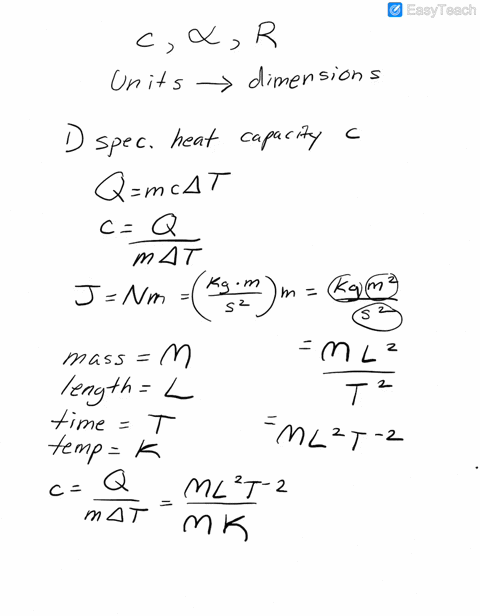 EasyTeach
c, α, R
Units → dimensions
1) spec. heat capacity c
Q = mcΔT
c = Q / mΔT
J = Nm = (kg·m / s²) m = kg m² / s²
mass = M
= ML² / T²
length = L
time = T
= ML²T⁻²
temp = K
c = Q / mΔT = ML²T⁻² / MK